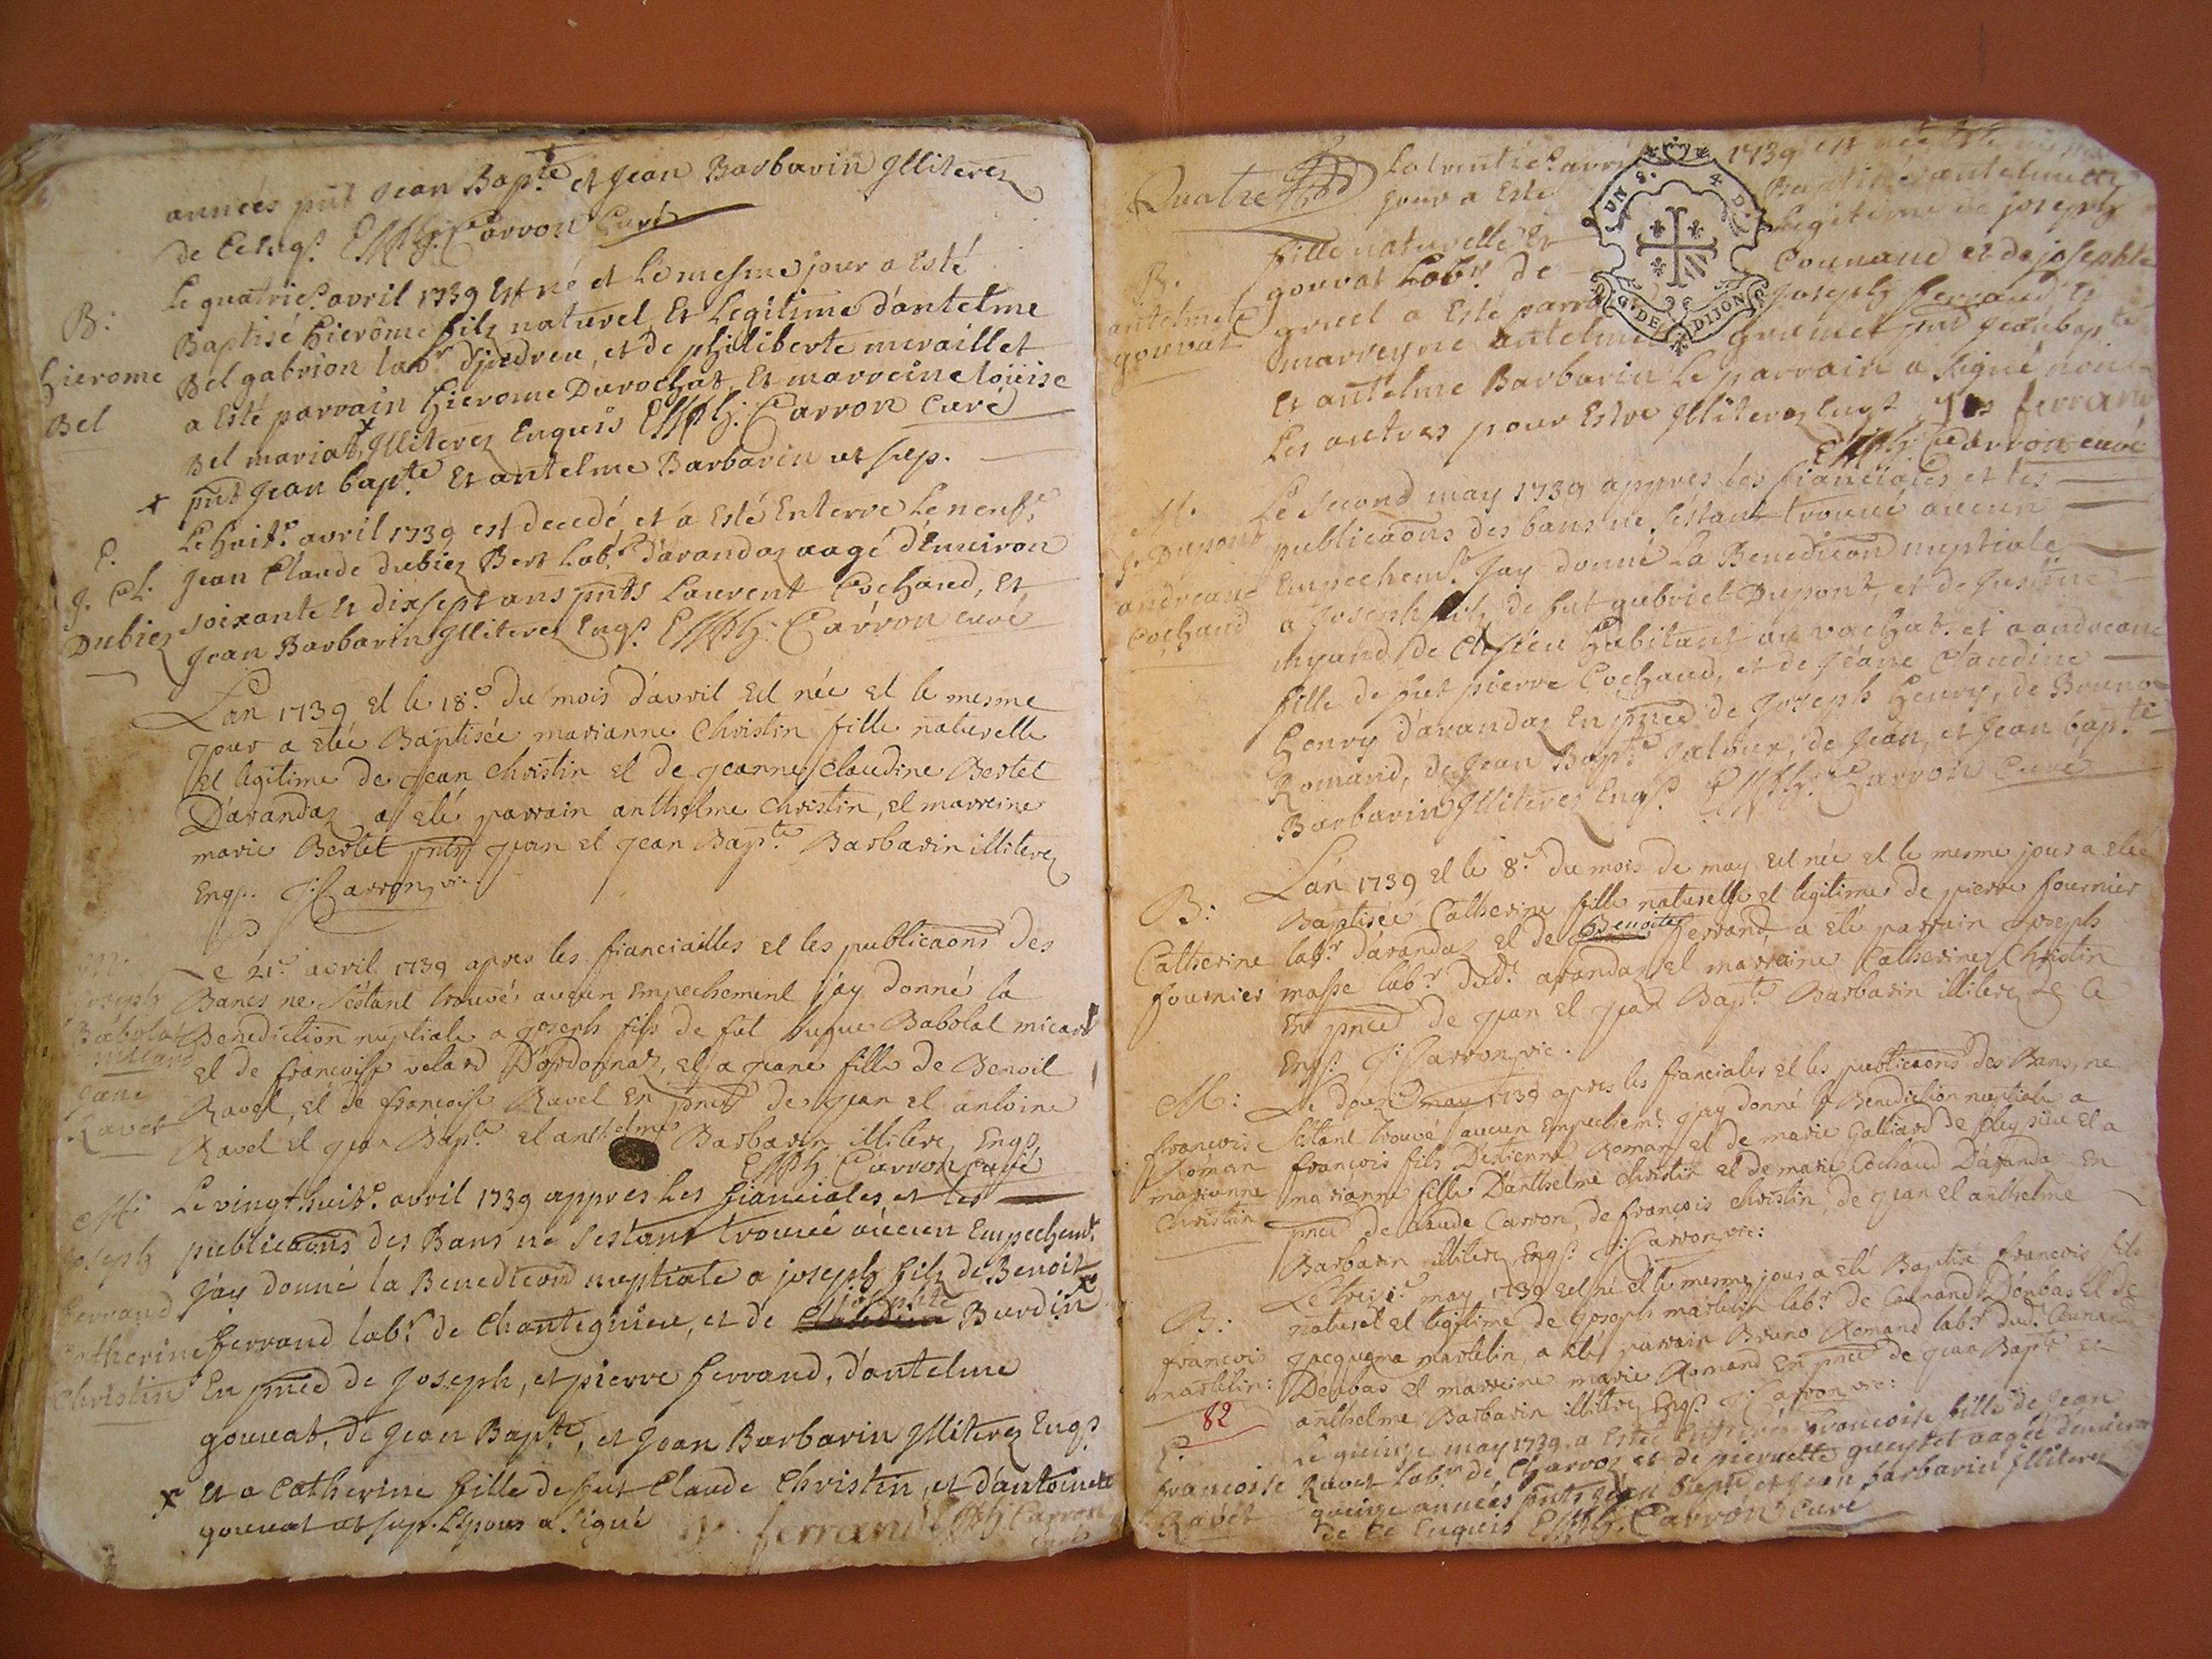 années pnt Jean Bapte et Jean Barbarin Illiterez
de ce Enqs. Carron Curé
B:
Hierome
Bel
Le quatrie. avril 1739 Est né et le mesme jour a Esté
Baptisé Hierôme filz naturel Et Legitime d'antelme
Bel gabrion labr. d'jndreu, et de philiberte meraillet
a Esté parrain Hierome Durochat, Et marreine loüise
Bel mariat, x Illiterez Enquis Carron curé
x pnt Jean bapte Et antelme Barbarin ut sup.
E.
J. Cl.
Dubiez
Le huit. avril 1739 est decedé, et a Esté Enterre Le neufe
Jean Claude dubiez Bert Labr. d'arandaz aagé d'Enuiron
soixante et dixsept ans pnts Laurent Cochaud, Et
Jean Barbarin Illiterez Enqs. Carron curé
Lan 1739 et le 18e. du mois d'avril est née et le mesme
jour a eté Baptisée marianne Christin fille naturelle
et legitime de jean christin et de jeanne claudine Bertet
D'arandaz a eté parrain anthelme christin, et marreine
marie Bertet pnts jean et jean Bapte. Barbarin illiterez
Enqs. Carron vic.
M.
Joseph
Babolat
micard
Jane
Ravet
Le 21e. avril 1739 apres les fianciailles et les publicaons des
Bancs ne s'étant trouvé aucun Empechement j'ay donné la
Benediction nuptiale a joseph fils de fut hugue Babolat micard
et de francoise velard D'ordonnaz, et a jeane fille de Benoit
Ravet, et de francoise Ravet en pnce de jean et antoine
Ravet et jean Bapte et anthelme Barbarin illiterez Enqs.
Carron curé
M:
Joseph
ferrand
Catherine
Christin
Le vingt huite. avril 1739 appres les fianciales et les
publicaons des Bans ne s'estant trouué aucun Empechemt.
J'ay donné la Benedicon nuptiale a joseph filz de Benoit
ferrand labr. de Chantegrieu, et de josephte Burdin x
En pnce de Joseph, et pierre ferrand, d'antelme
gouuat, de Jean Bapte, et Jean Barbarin Illiterez Enqs.
x Et a Catherine fille de fut Claude Christin, et d'antoinete
gouuat ut sup. L'Epoux a signé ferrand Carron
Quatre
B.
antelmete
gouuat
La trentie. avri 1739 est née
jour a Esté Baptisée antelmete
fille naturelle Et Legitime de joseph
gouvat Labr. de Counand et de josephte
gruel a Esté parra Joseph ferrand, Et
marreyne antelme Grumet pnt jeanbapte
Et antelme Barbarin Le parrain a signé non
Les autres pour Estre Illiterez Enqs. ferrand
Carron curé
M.
J. Dupont
andreane
Cochaud
Le second may 1739 appres les fianciales et les
publicaons des bans ne s'estant trouué aucun
Empechemt. J'ay donné La Benedicon nuptiale
a Joseph filz de fut gabriel Dupont, et de Justine
myand de Habitant au vachat. et a andreane
fille de fut pierre Cochaud, et de jéane Claudine
Henry d'arandaz En pnce de Joseph Henry, de Bruno
Romand, de Jean Bapte Jalour, de Jean, et Jean bapte
Barbarin Illiterez Enqs. Carron Curé
B:
Catherine
fournier
Lan 1739 et le 8e. du mois de may est née et le mesme jour a eté
Baptisée Catherine fille naturelle et legitime de pierre fournier
labr. d'arandaz et de Benoite ferrand, a eté parrain joseph
masse labr. dud. arandaz et marraine Catherine Christin
En pnce de jean et jean Bapte. Barbarin illiterez de ce
Enqs. Carron vic:
M:
francois
Roman
marianne
Christin
Le douze may 1739 apres les fianciales et les publicaons des Bans, ne
s'étant trouvé aucun Empechemt. j'ay donné la Benediction nuptiale a
francois fils D'etienne Roman et de marie Galliard de Cleyzieu et a
marianne fille D'anthelme christin et de marie Cochaud D'arandaz En
pnce de claude Carron, de francois christin, de jean et anthelme
Barbarin illiterez Enqs. Carron vic:
B:
francois
martelin:
82
Le treizie. may 1739 est né et le mesme jour a eté Baptisé francois fils
naturel et legitime de joseph martelin labr. de Counand D'enbas et de
jacquema martelin, a eté parrain Bruno Romand labr. dud. Counand
D'enbas et marreine marie Romand En pnce de jean Bapte. Et
anthelme Barbarin illiterez Enqs. Carron vic:
E.
francoise
Ravet
Le quinze may 1739. a Esté Enterrée francoise fille de Jean
Ravet labr. de Charvoz et de pierrette aagée denuiron
quinze années pnts Jean bapte et Jean barbarin Illiterez
de ce Enquis Carron Curé
UN S. 4 D.
G. DE DIJON